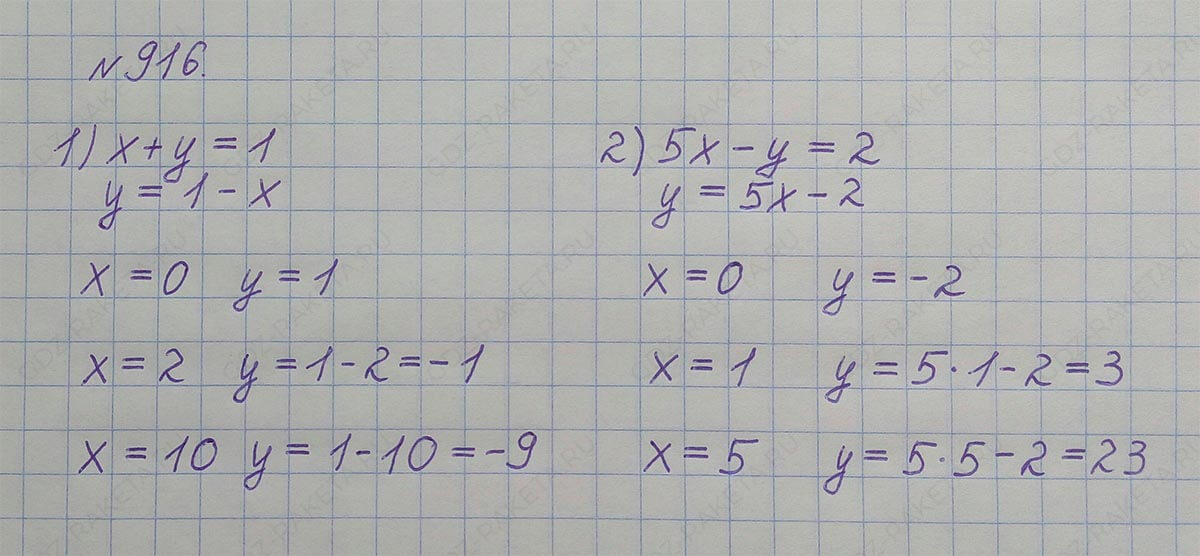 №916.
1) x+y=1
y=1-x
x=0 y=1
x=2 y=1-2=-1
x=10 y=1-10=-9
2) 5x-y=2
y=5x-2
x=0 y=-2
x=1 y=5·1-2=3
x=5 y=5·5-2=23
GDZ-RAKETA.RU